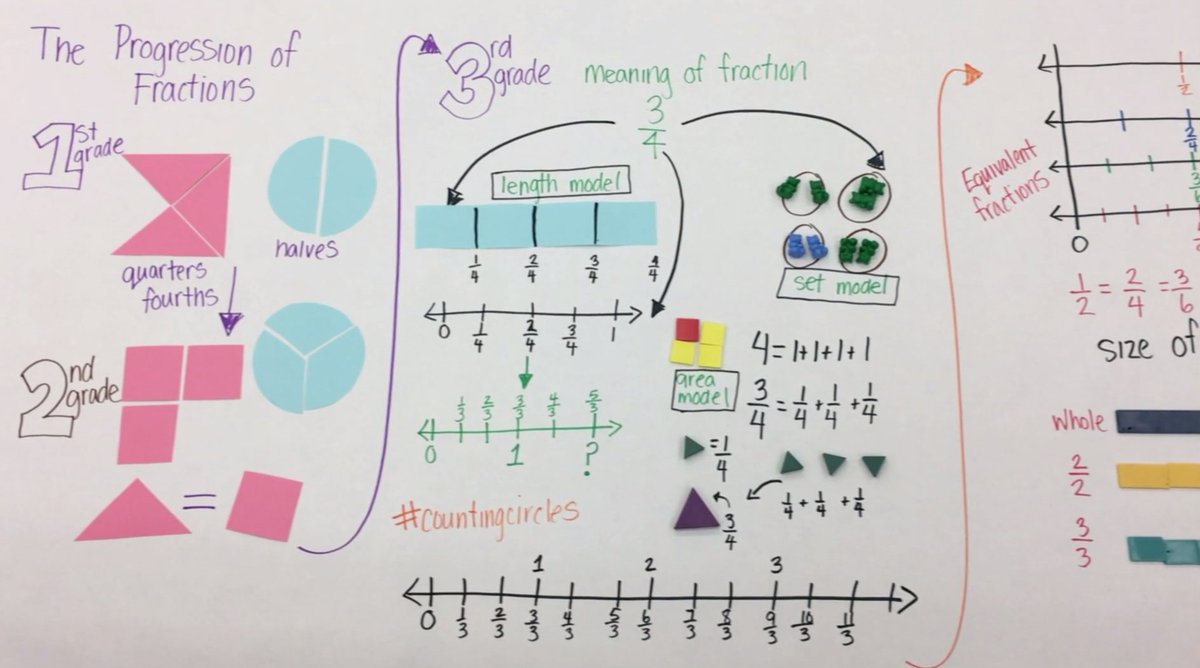 The Progression of
Fractions
1st grade
halves
quarters
fourths
2nd grade
=
3rd grade
meaning of fraction
3/4
length model
1/4 2/4 3/4 4/4
0 1/4 2/4 3/4 1
1/3 2/3 3/3 4/3 5/3
0 1 ?
set model
area
model
4=1+1+1+1
3/4=1/4+1/4+1/4
=1/4
1/4+1/4+1/4
3/4
#countingcircles
1 2 3
0 1/3 2/3 3/3 4/3 5/3 6/3 7/3 8/3 9/3 10/3 11/3
Equivalent
fractions
1/2
2/4
3/6
0
1/2=2/4=3/6
size of
Whole
2/2
3/3